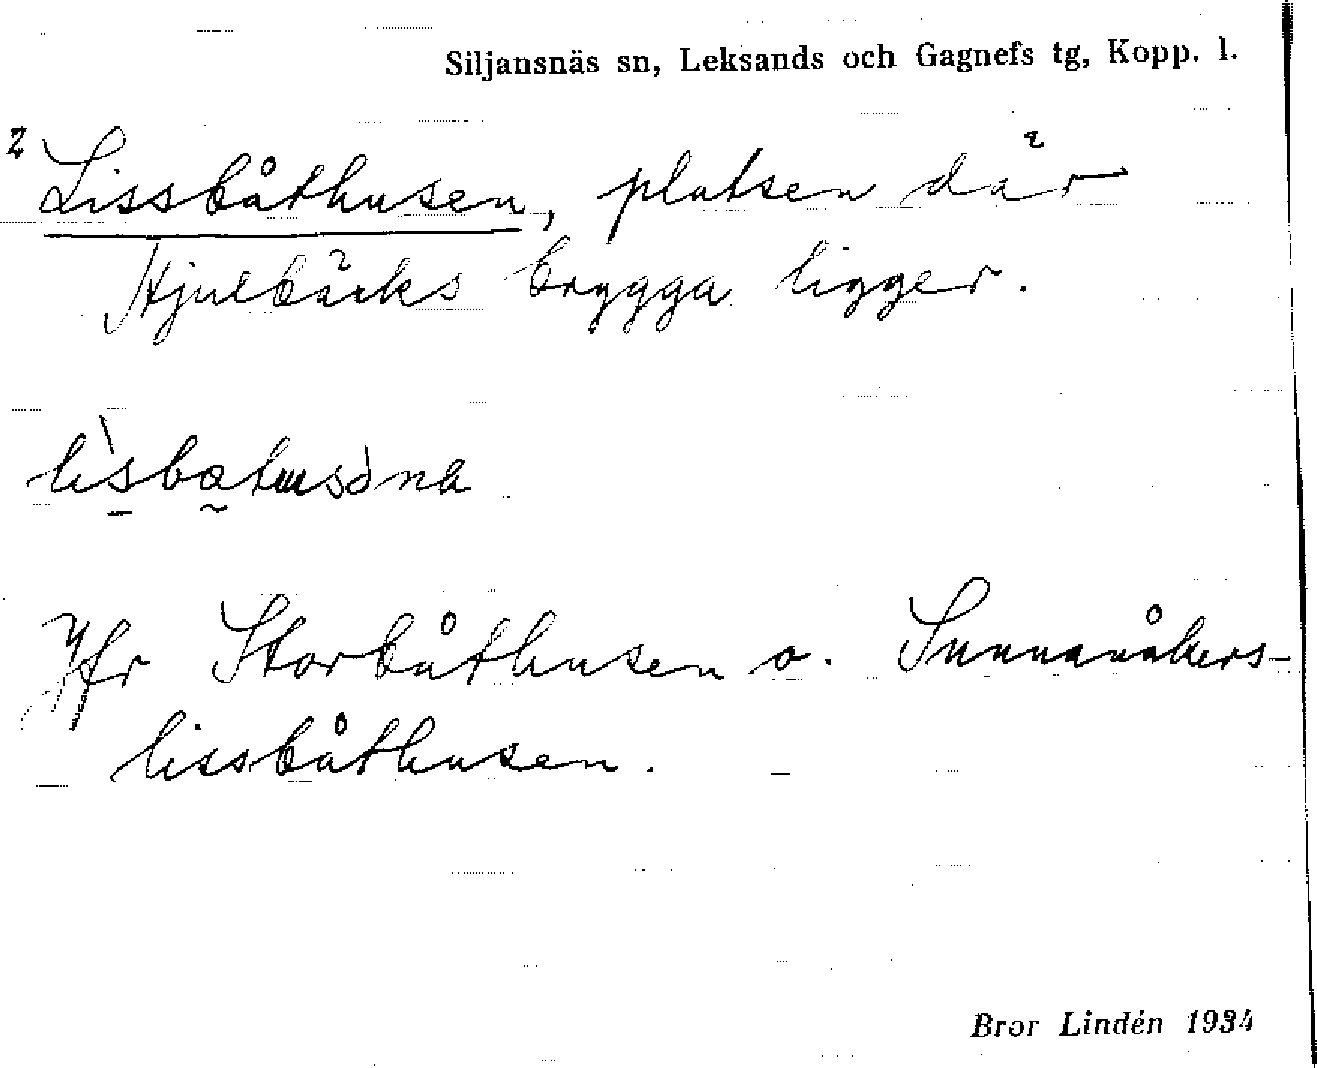 Siljansnäs sn, Leksands och Gagnefs tg, Kopp. l.
2 Lissbåthusen, platsen där
Hjulbäcks brygga ligger.
Jfr Storbåthusen o. Sunnanåkers-
lissbåthusen.
Bror Lindén 1934